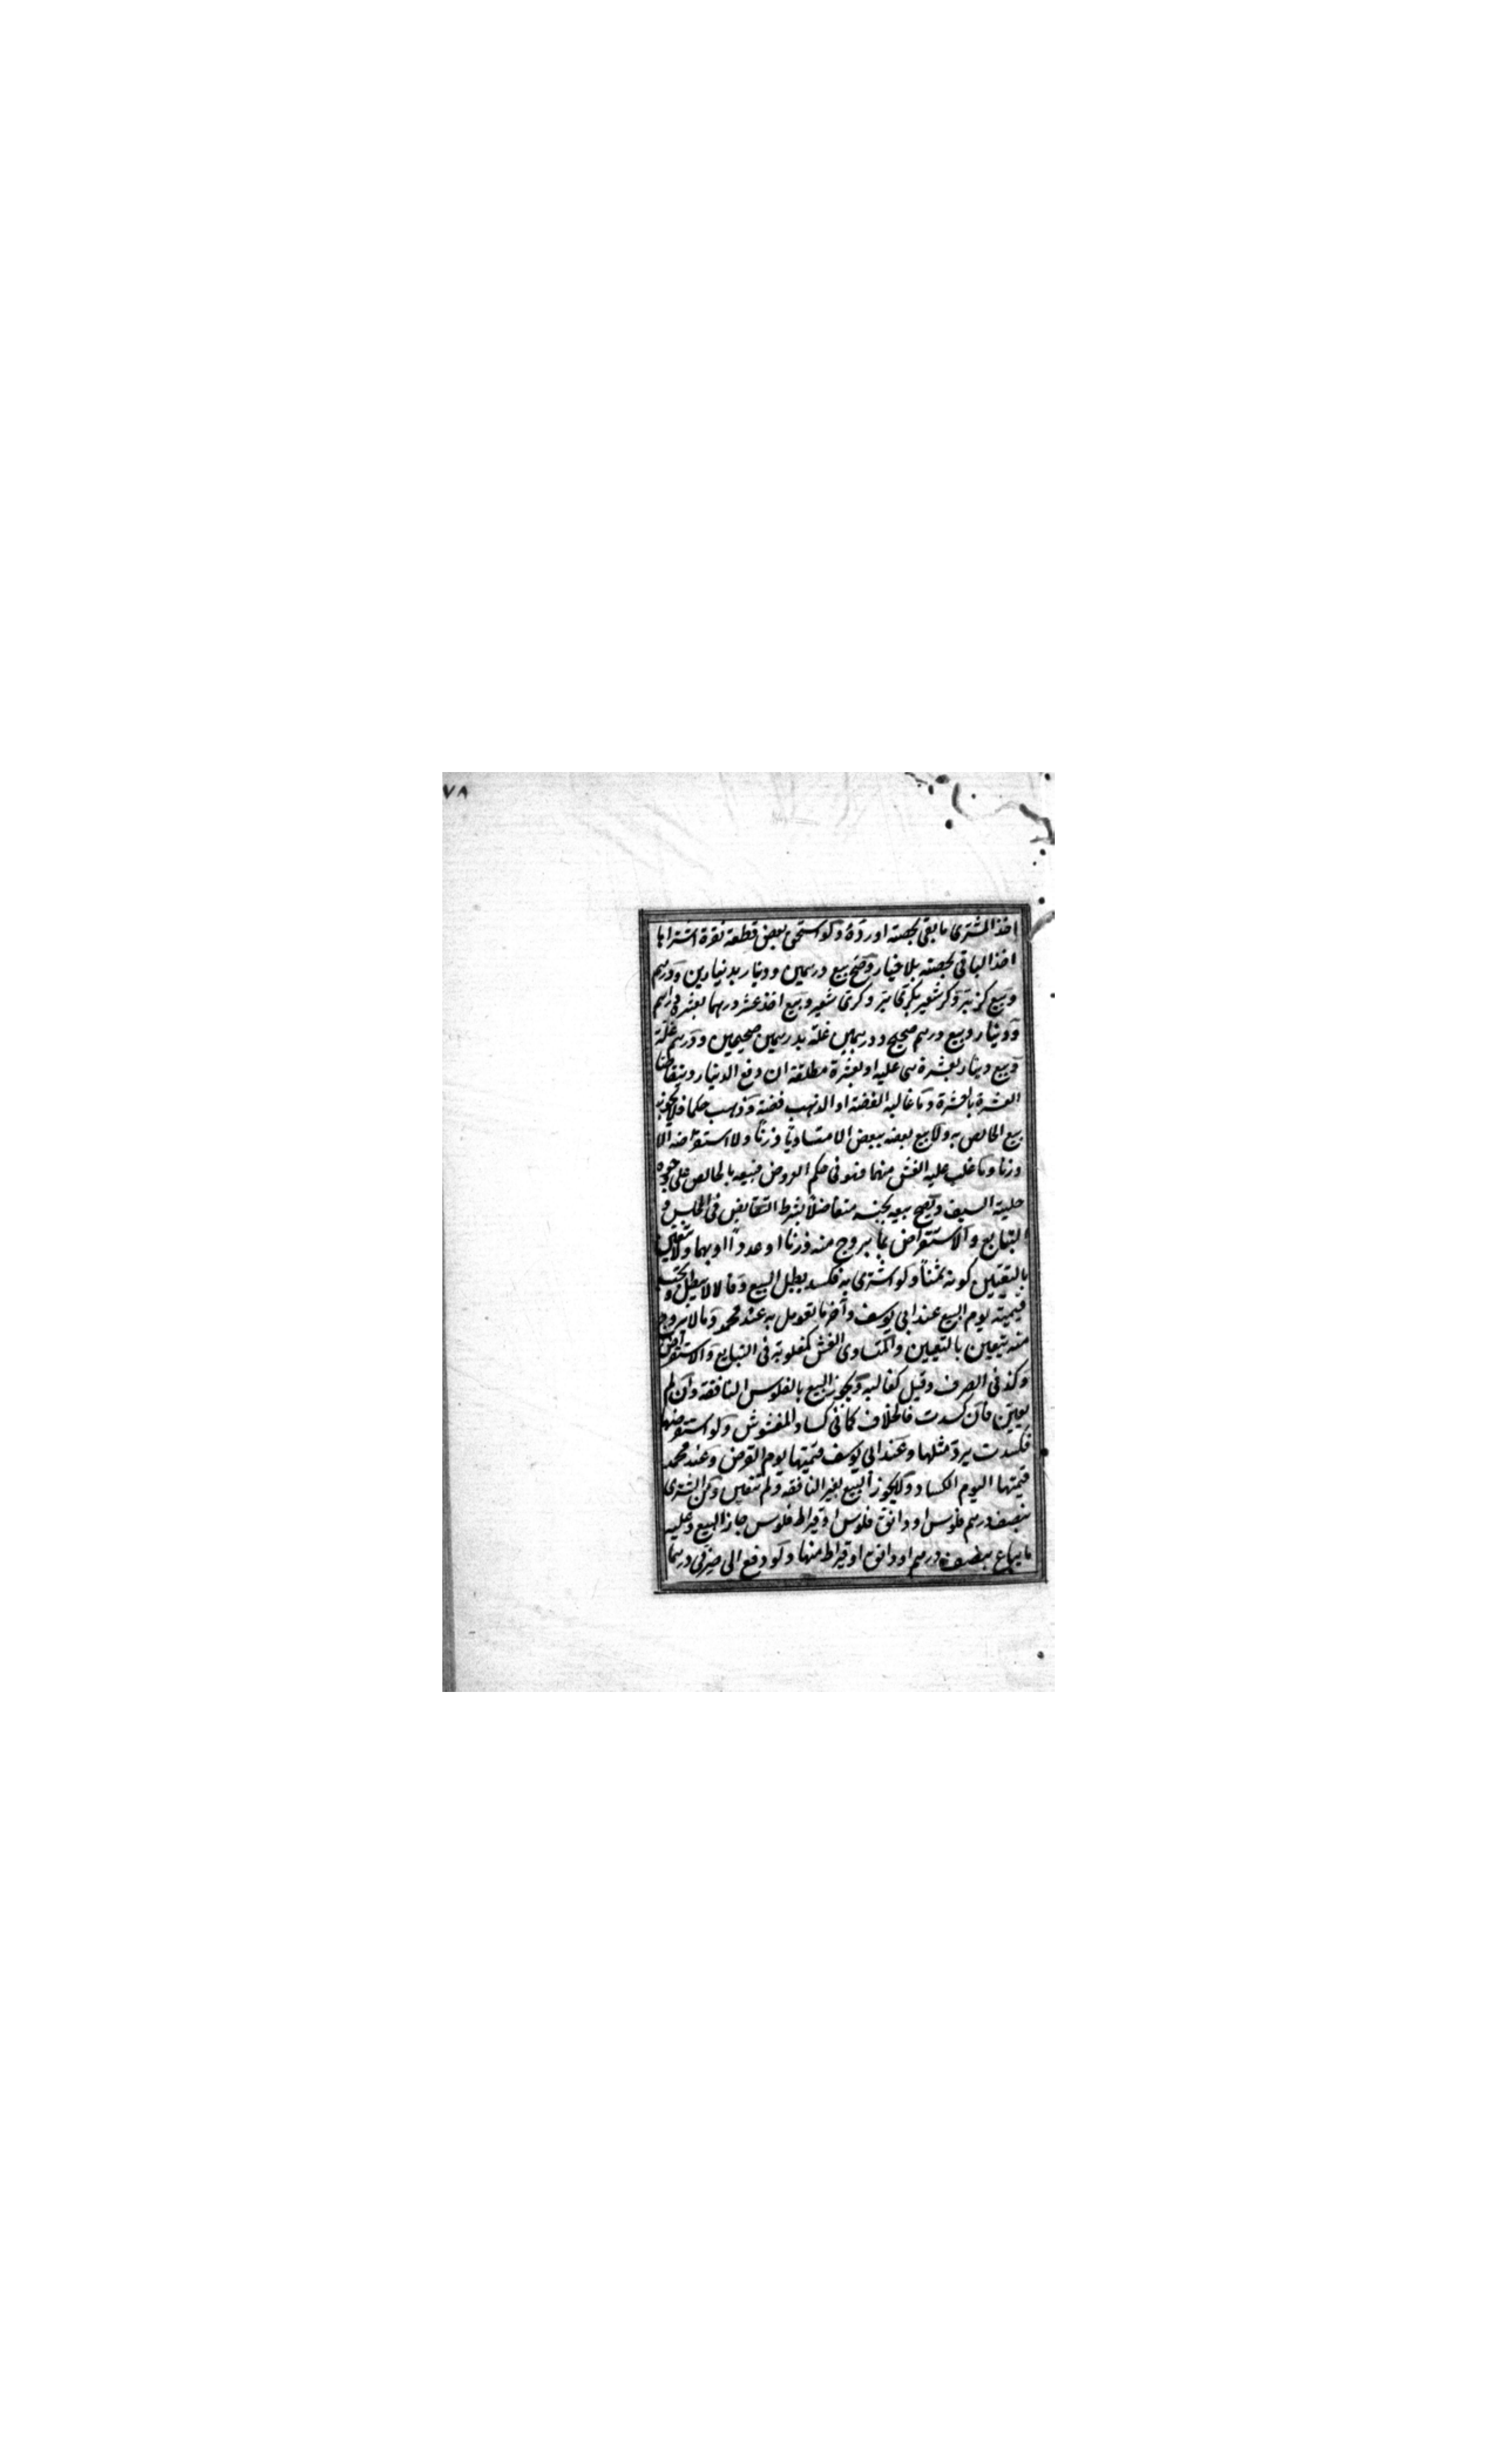 ٧٨
اخذ المشترى ما بقى بحصته او رده ولو استحق بعض قطعة نقرة اشتراها
اخذ الباقى بحصته بلا خيار وصح بيع درهمين ودينار بدينارين ودرهم
وبيع كر بر وكر شعير بكرى بر وكرى شعير وبيع احد عشر درهما بعشرة دراهم
ودينار وبيع درهم صحيح ودرهمين غلة بدرهمين صحيحين ودرهم غلة
وبيع دينار بعشرة هى عليه او بعشرة مطلقة ان دفع الدينار ويتقاصا
العشرة بالعشرة وما غالبه الفضة او الذهب فضة وذهب حكما فلا يجوز
بيع الخالص به ولا بيع بعضه ببعض الا متساويا وزنا ولا استقراضه الا
وزنا وما غلب عليه الغش منهما فهو فى حكم العروض فبيعه بالخالص على وجوه
حلية السيف ويصح بيعه بجنسه متفاضلا بشرط التقابض فى المجلس و
التبايع والاستقراض بما يروج منه وزنا او عددا او بهما ولا يتعين
بالتعيين كونه ثمنا ولو اشترى به فكسد بطل البيع وقالا لا يبطل وتجب
قيمته يوم البيع عند ابى يوسف وآخر ما تعومل به عند محمد وما لا يروج
منه يتعين بالتعيين والمتساوى الغش كمغلوبه فى التبايع والاستقراض
وكذا فى الصرف وقيل كغالبه ويجوز البيع بالفلوس النافقة وان لم
يعين فان كسدت فالخلاف كما فى كساد المغشوش ولو استقرضها
فكسدت يرد مثلها وعند ابى يوسف قيمتها يوم القرض وعند محمد
قيمتها اليوم الكساد ولا يجوز البيع بغير النافقة ولم تتعين ومن اشترى
بنصف درهم فلوس او دانق فلوس او قيراط فلوس جاز البيع وعليه
ما يباع بنصف درهم او دانق او قيراط منها ولو دفع الى صيرفى درهما